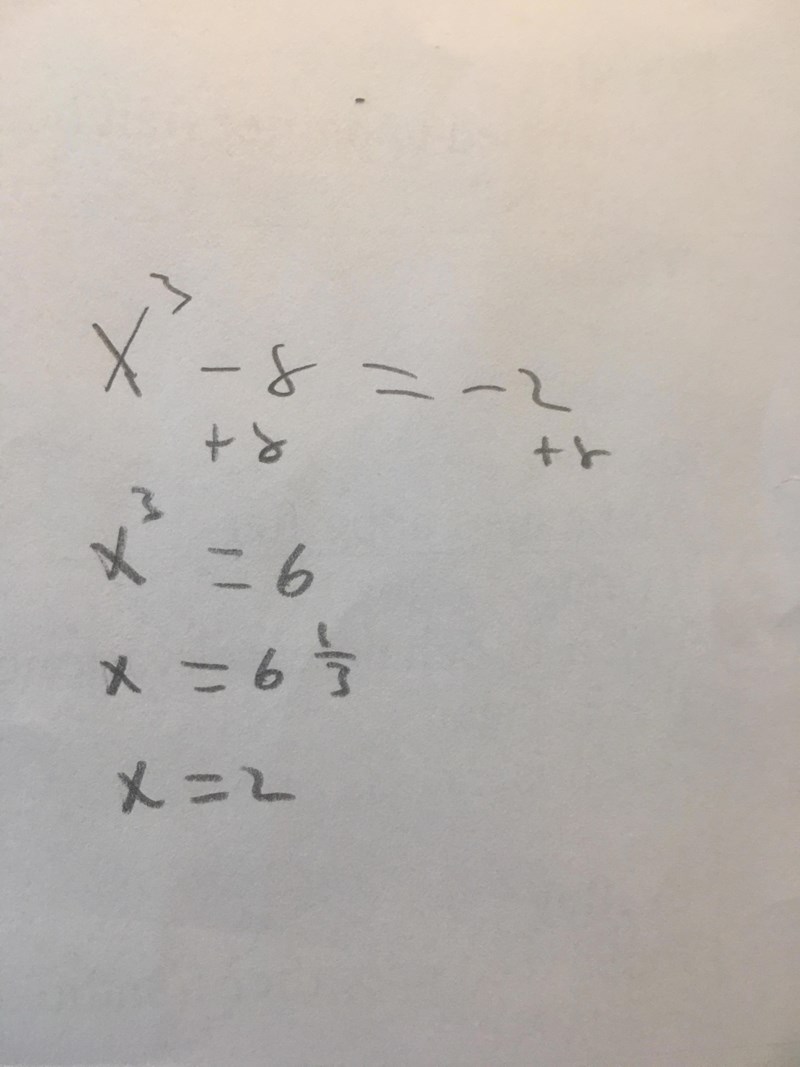 x³ - 8 = -2
+8 +8
x³ = 6
x = 6 1/3
x = 2